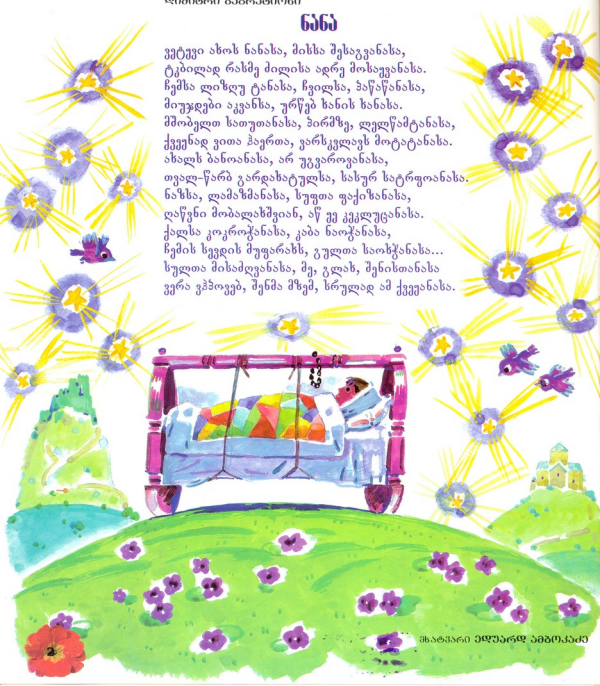 დიმიტრი ბაგრატიონი
ნანა
ვეტყვი ახოს ნანასა, მისსა შესაგვანასა,
ტკბილად რასმე ძილისა ადრე მოსაყვანასა.
ჩემსა ლიზღუ ტანასა, ჩვილსა, პაწაწანასა,
მიუჯდები აკვანსა, ურწებ ხანის ხანასა.
მშობელთ სათუთანასა, პირმზე, ლელწამტანასა,
ქვეყნად ვითა ჰაერთა, ვარსკვლავს მოტატანასა.
ახალს ბანოანასა, არ უგვაროვანასა,
თვალ-წარბ გარდახატულსა, სასურ სატრფოანასა.
ნაზსა, ლამაზმანასა, სუფთა ფაქიზანასა,
დაწვნი მობალახშვიან, აწ ვე კეკლუცანასა.
ქალსა კოკროჭანასა, კაბა ნაოჭანასა,
ჩემის სევდის მუფარახს, გულთა საოხჭანასა...
სულთა მისამღვანასა, მე, გლახ, შენისთანასა
ვერა ვჰპოვებ, შენმა მზემ, სრულად ამ ქვეყანასა.
მხატვარი ედუარდ ამბოკაძე
2